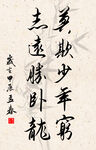 莫欺少年窮
志遠勝卧龍
歲在甲辰孟春